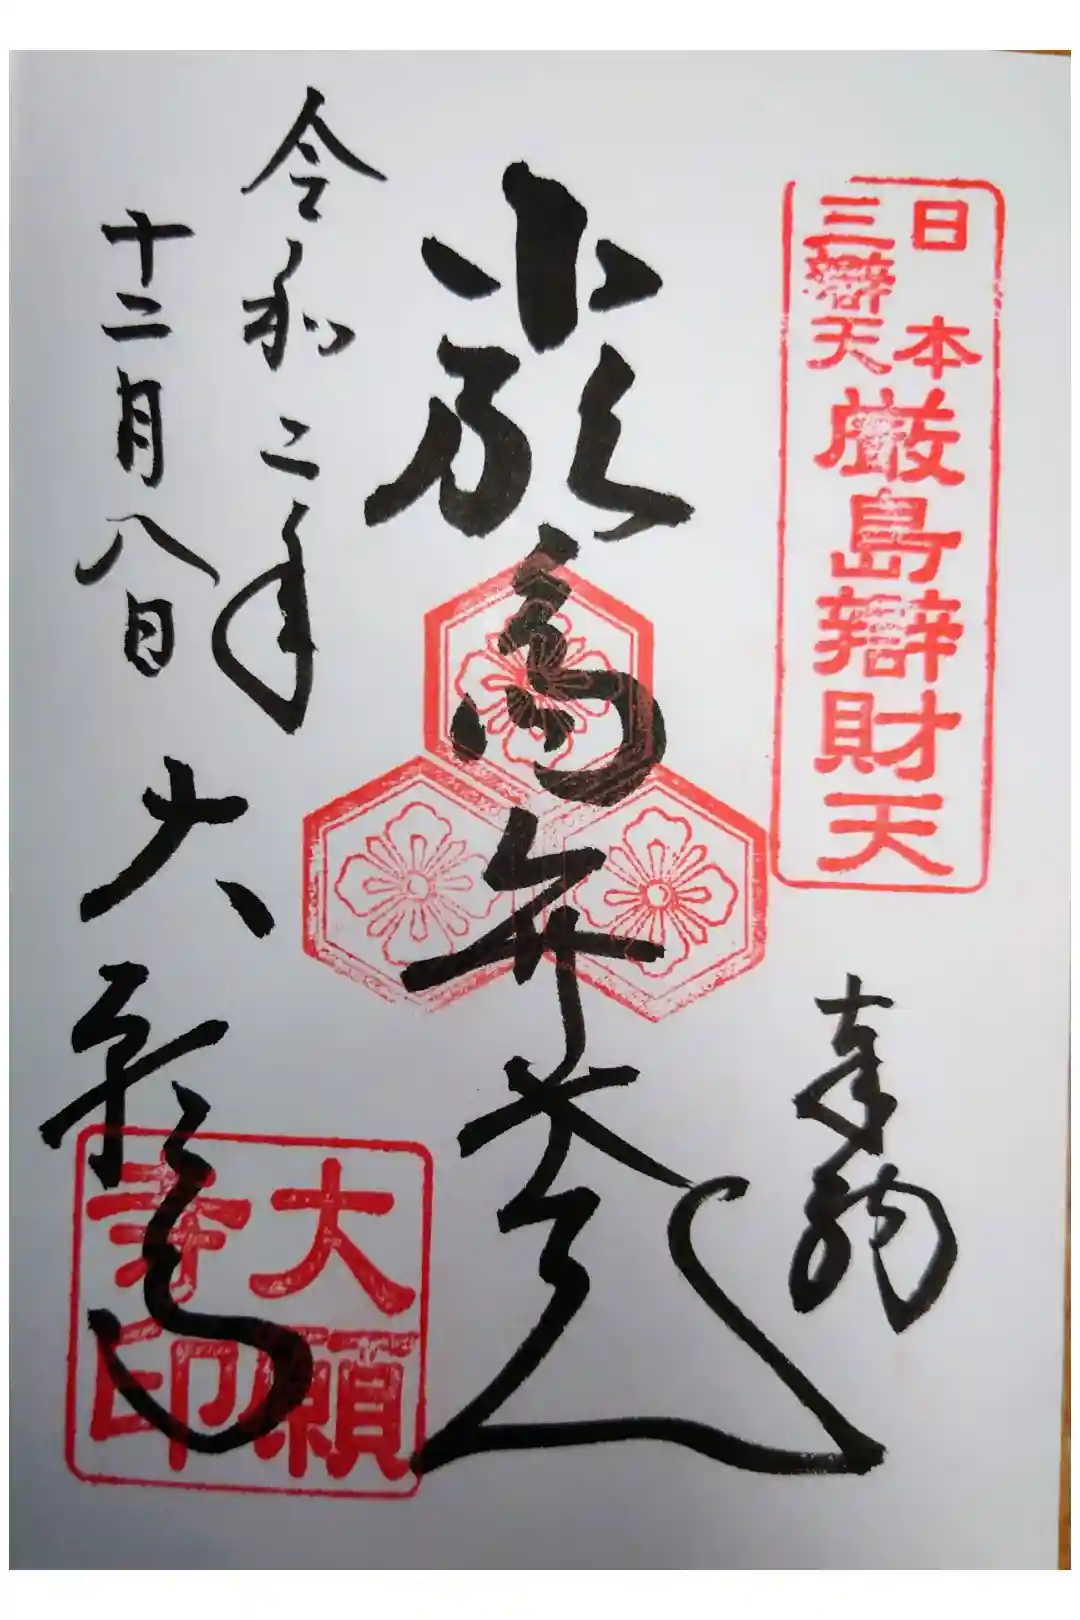 日本
三辯天
厳島辯財天
奉拝
厳島弁財天
令和二年
十二月八日
大願寺
大願
寺印